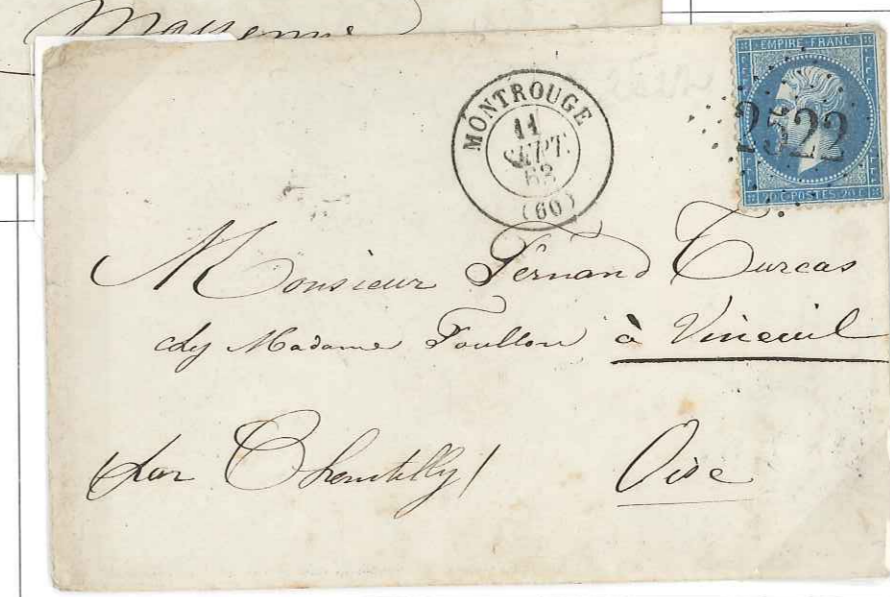 Mayenne
MONTROUGE
11
SEPT.
63
(60)
EMPIRE FRANC
2522
POSTES 20 C
Monsieur Fernand Turcas
chez Madame Foullon à Vineuil
par Chantilly / Oise